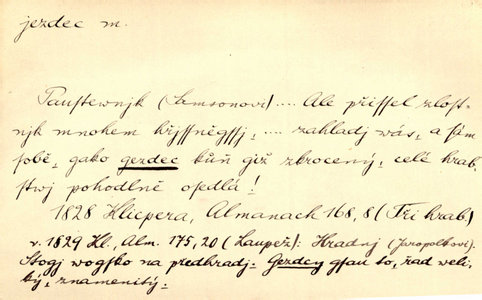 jezdec m.
Paustewnjk (Samsonovi) .... Ale přissel zlost-
njk mnohem hřjssněgssj, .... zakladj wás, a sám
sobě, gako gezdec kůň giž zkrocený, celé hrab-
stwj pohodlně osedlá!
1828 Klicpera, Almanach 168, 8 (Tři hrab.)
v. 1829 Kl., Alm. 175, 20 (Laupež): Hradnj (Jaropolkovi).
Stogj wogsko na předhradj. Gezdcy gsau to, řad weli-
ký, znamenitý.